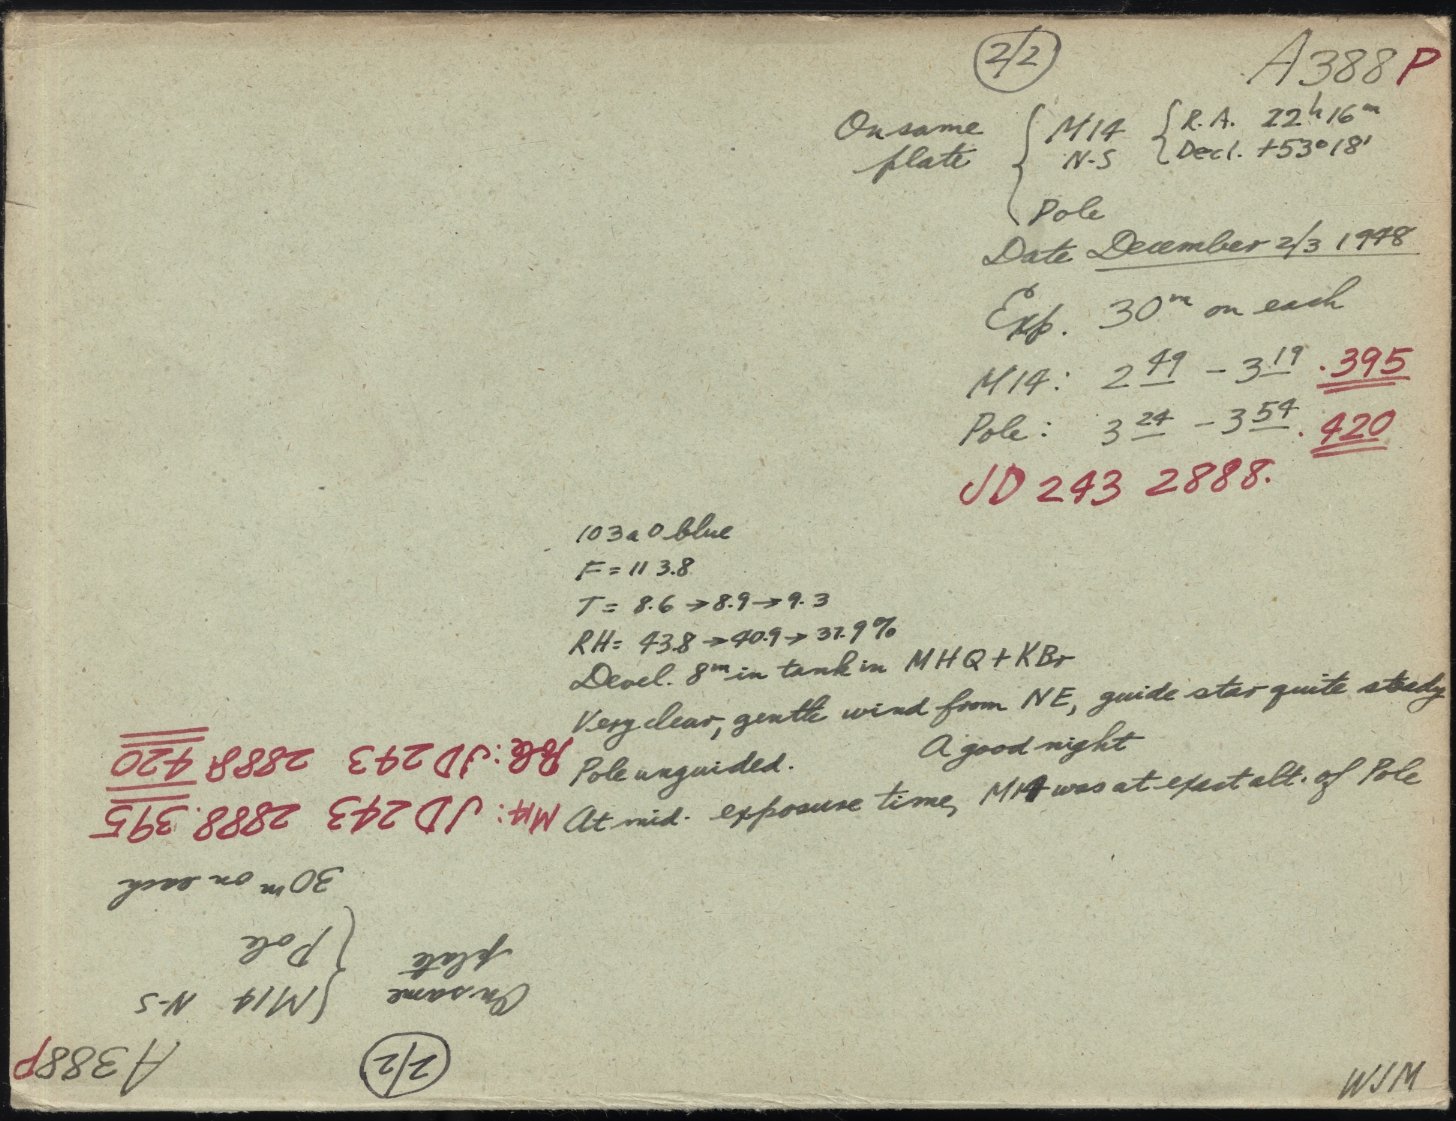 2/2 A388P
On same plate { M14 N-S { R.A. 22h16m
Decl. +53°18'
Pole
Date December 2/3 1948
Exp. 30m on each
M14: 2 49 - 3 19 .395
Pole: 3 24 - 3 54 .420
JD 243 2888.
103aO blue
F = 113.8
T = 8.6 → 8.9 → 9.3
RH = 43.8 → 40.9 → 37.9%
Devel. 8m in tank in MHQ + KBr
Very clear, gentle wind from NE, guide star quite steady
A good night
Pole unguided.
At mid. exposure time, M14 was at exact alt. of Pole
WJM
A388P 2/2
On same plate { M14 N-S
Pole
30m on each
M14: JD 243 2888.395
Pole: JD 243 2888.420